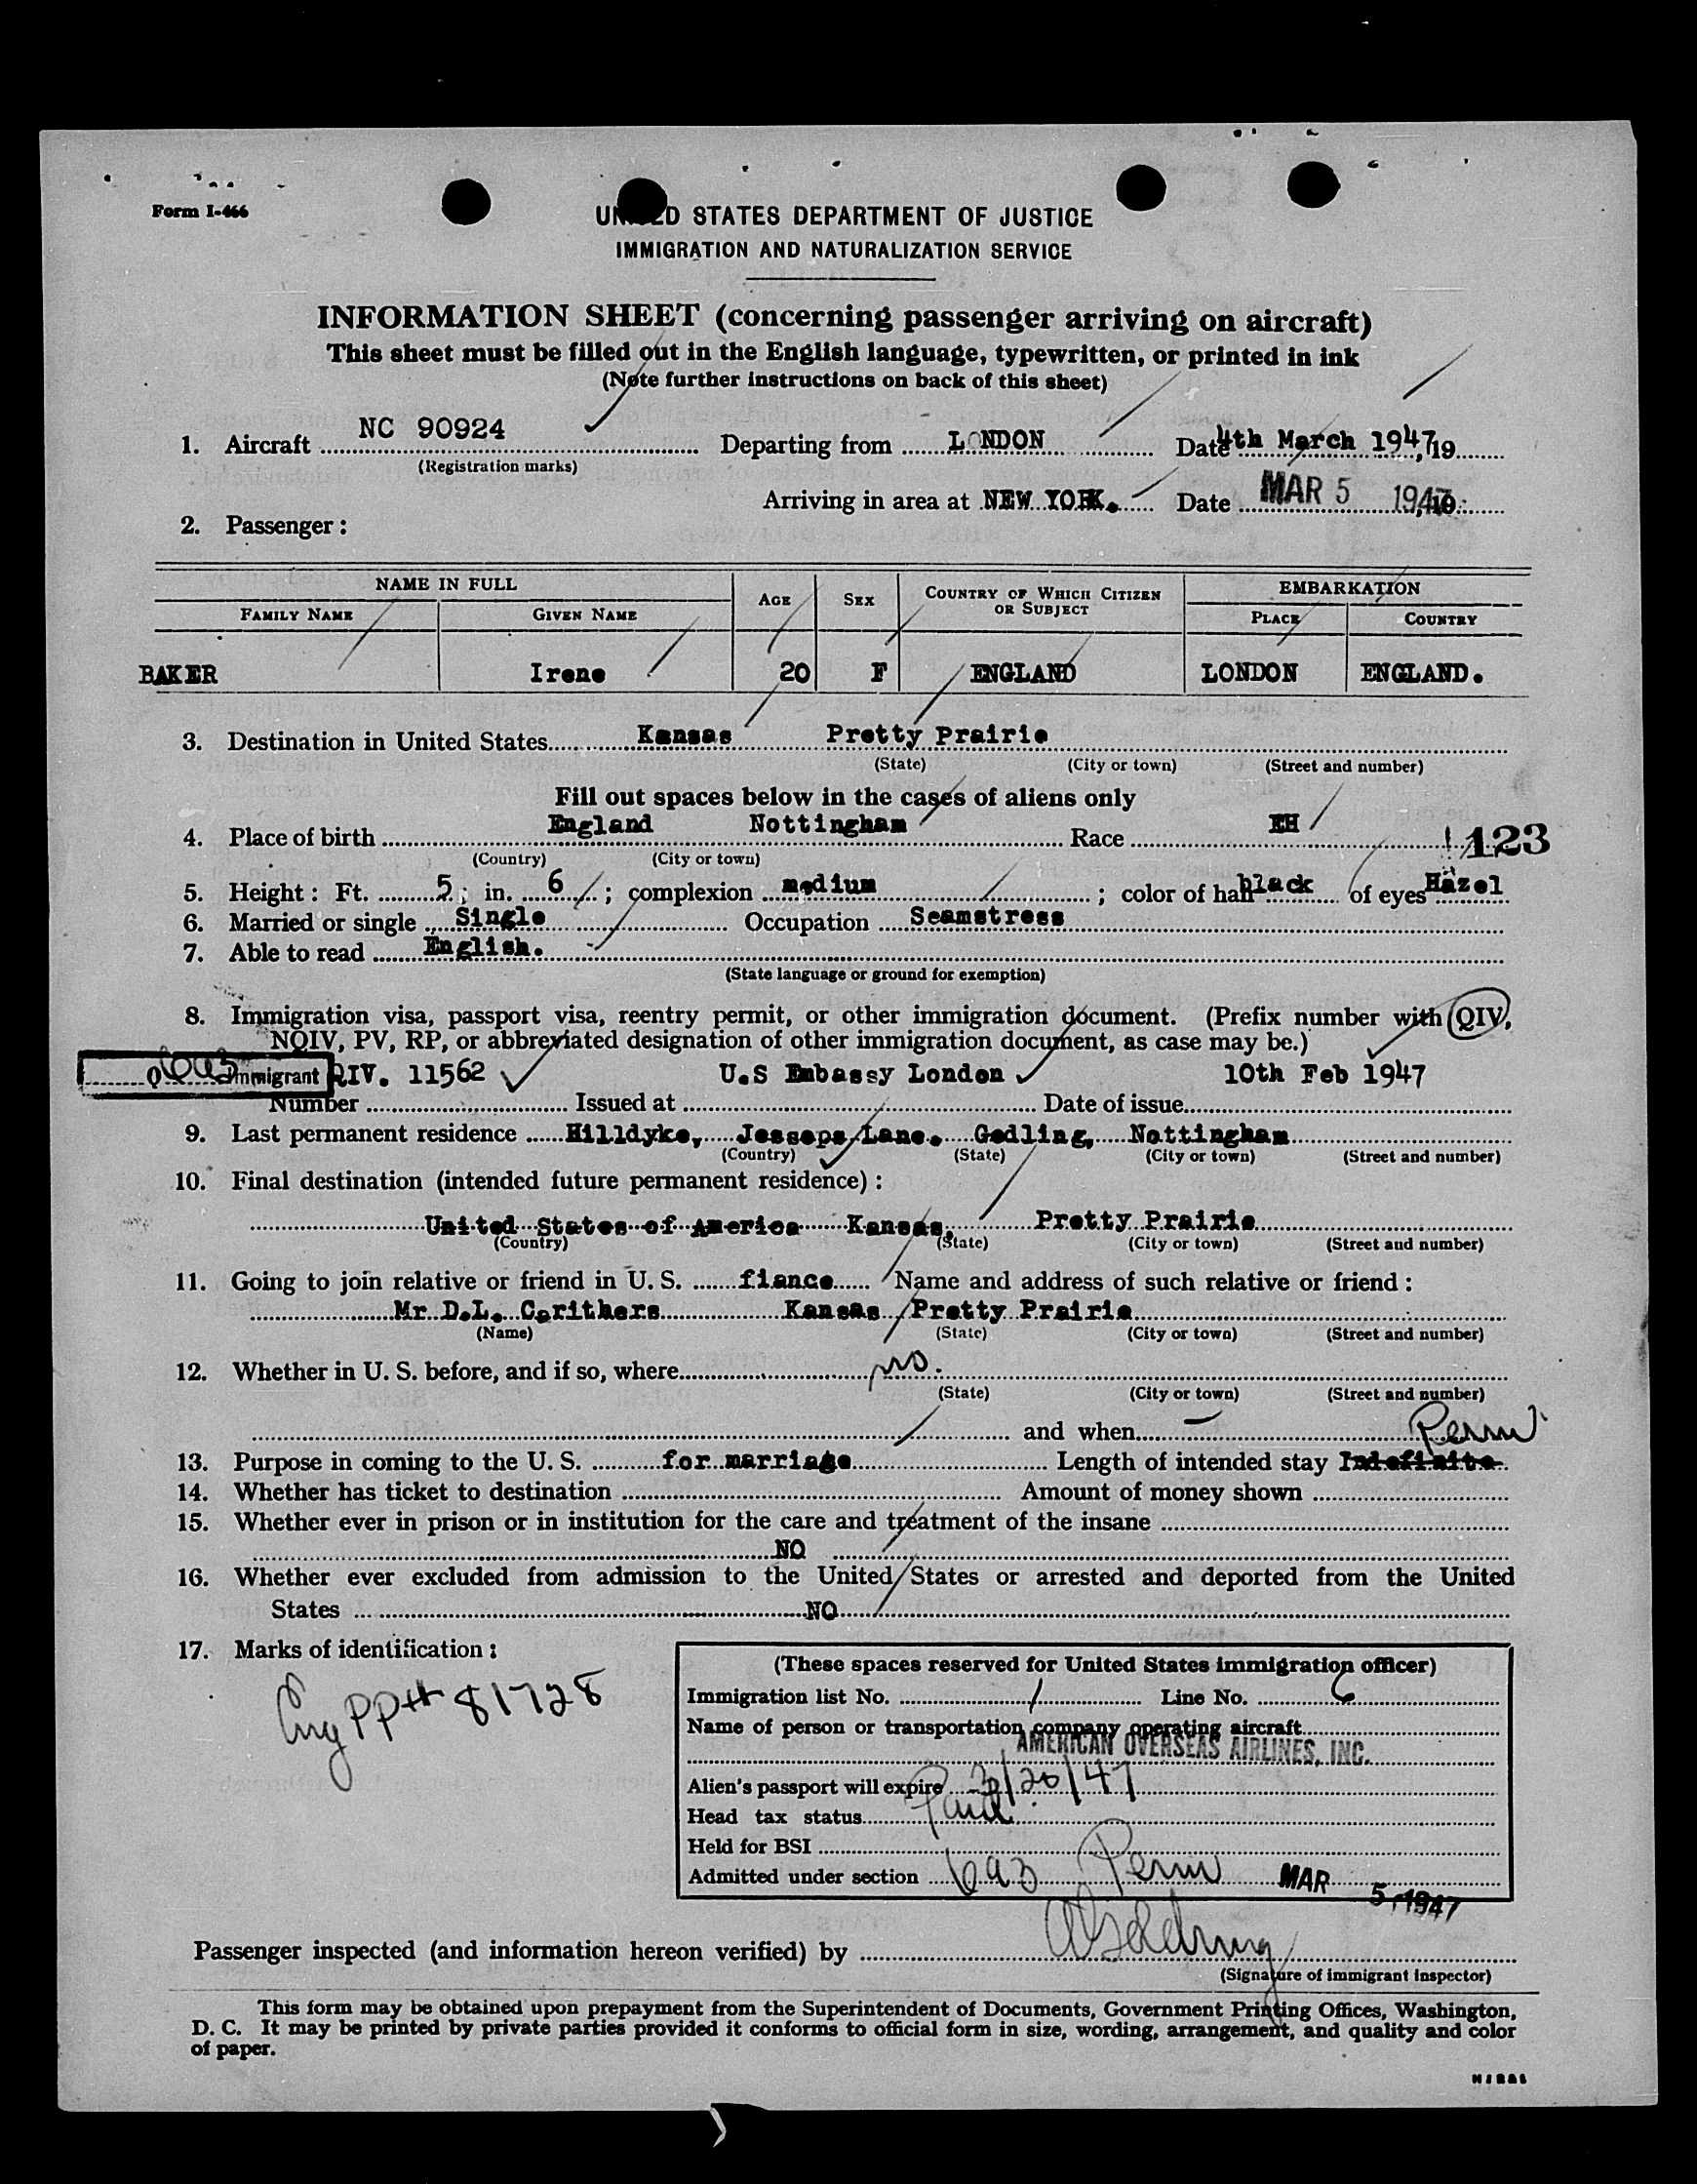 Form I-466
UNITED STATES DEPARTMENT OF JUSTICE
IMMIGRATION AND NATURALIZATION SERVICE
INFORMATION SHEET (concerning passenger arriving on aircraft)
This sheet must be filled out in the English language, typewritten, or printed in ink
(Note further instructions on back of this sheet)
1. Aircraft NC 90924 Departing from LONDON Date 4th March 1947, 19
(Registration marks)
Arriving in area at NEW YORK. Date MAR 5 1947
2. Passenger:
NAME IN FULL
FAMILY NAME GIVEN NAME AGE SEX COUNTRY OF WHICH CITIZEN OR SUBJECT EMBARKATION
PLACE COUNTRY
BAKER Irene 20 F ENGLAND LONDON ENGLAND.
3. Destination in United States Kansas Pretty Prairie
(State) (City or town) (Street and number)
Fill out spaces below in the cases of aliens only
4. Place of birth England Nottingham Race EH 123
(Country) (City or town)
5. Height: Ft. 5; in. 6; complexion medium; color of hair black of eyes Hazel
6. Married or single Single Occupation Seamstress
7. Able to read English.
(State language or ground for exemption)
8. Immigration visa, passport visa, reentry permit, or other immigration document. (Prefix number with QIV,
NQIV, PV, RP, or abbreviated designation of other immigration document, as case may be.)
Immigrant QIV. 11562 U.S Embassy London 10th Feb 1947
Number Issued at Date of issue
9. Last permanent residence Hilldyke, Jessops Lane. Gedling, Nottingham
(Country) (State) (City or town) (Street and number)
10. Final destination (intended future permanent residence):
United States of America Kansas, Pretty Prairie
(Country) (State) (City or town) (Street and number)
11. Going to join relative or friend in U. S. fiance Name and address of such relative or friend:
Mr D.L. Carithers Kansas Pretty Prairie
(Name) (State) (City or town) (Street and number)
12. Whether in U. S. before, and if so, where no.
(State) (City or town) (Street and number)
and when — Perm
13. Purpose in coming to the U. S. for marriage Length of intended stay Indefinite
14. Whether has ticket to destination Amount of money shown
15. Whether ever in prison or in institution for the care and treatment of the insane
NO
16. Whether ever excluded from admission to the United States or arrested and deported from the United
States NO
17. Marks of identification:
Eng PP# 81728
(These spaces reserved for United States immigration officer)
Immigration list No. 1 Line No. 6
Name of person or transportation company operating aircraft
AMERICAN OVERSEAS AIRLINES, INC.
Alien's passport will expire 3/20/47
Head tax status Paid
Held for BSI
Admitted under section 6a3 Perm MAR 5 1947
Passenger inspected (and information hereon verified) by
(Signature of immigrant inspector)
This form may be obtained upon prepayment from the Superintendent of Documents, Government Printing Offices, Washington,
D. C. It may be printed by private parties provided it conforms to official form in size, wording, arrangement, and quality and color
of paper.